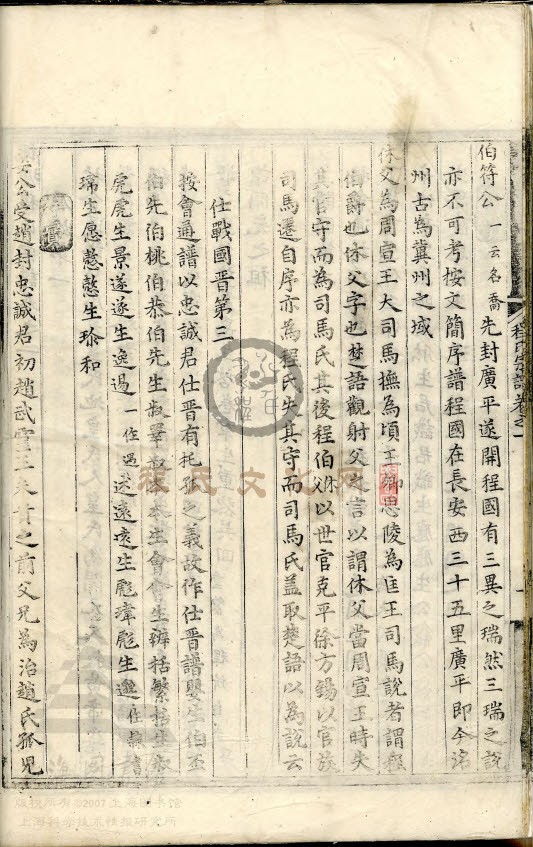 伯符公一云名喬先封廣平遂開程國有三異之瑞然三瑞之說
亦不可考按文簡序譜程國在長安西三十五里廣平即今洺
州古為冀州之域
休父為周宣王大司馬撫為頃王卿思陵為匡王司馬說者謂程
伯爵也休父字也楚語觀射父之言以謂休父當周宣王時失
其官守而為司馬氏其後程伯休父以世官克平徐方錫以官族
司馬遷自序亦為程氏失其守而司馬氏蓋取楚語以為說云
仕戰國晉第三
按會通譜以忠誠君仕晉有托孤之義故作仕晉譜嬰生伯丕
伯先伯桃伯恭伯先生叔畢叔本生會會生辨括繁括生
虎虎生景遂遂生逸過一作述遠遠生彪瑋彪生邈
瑞生愿慤慤生珍和
公受趙封忠誠君初趙武靈王之前父兄為治趙氏孤兒
程氏宗譜卷之一
程氏文化网
版权所有©2007上海图书馆
上海科学技术情报研究所